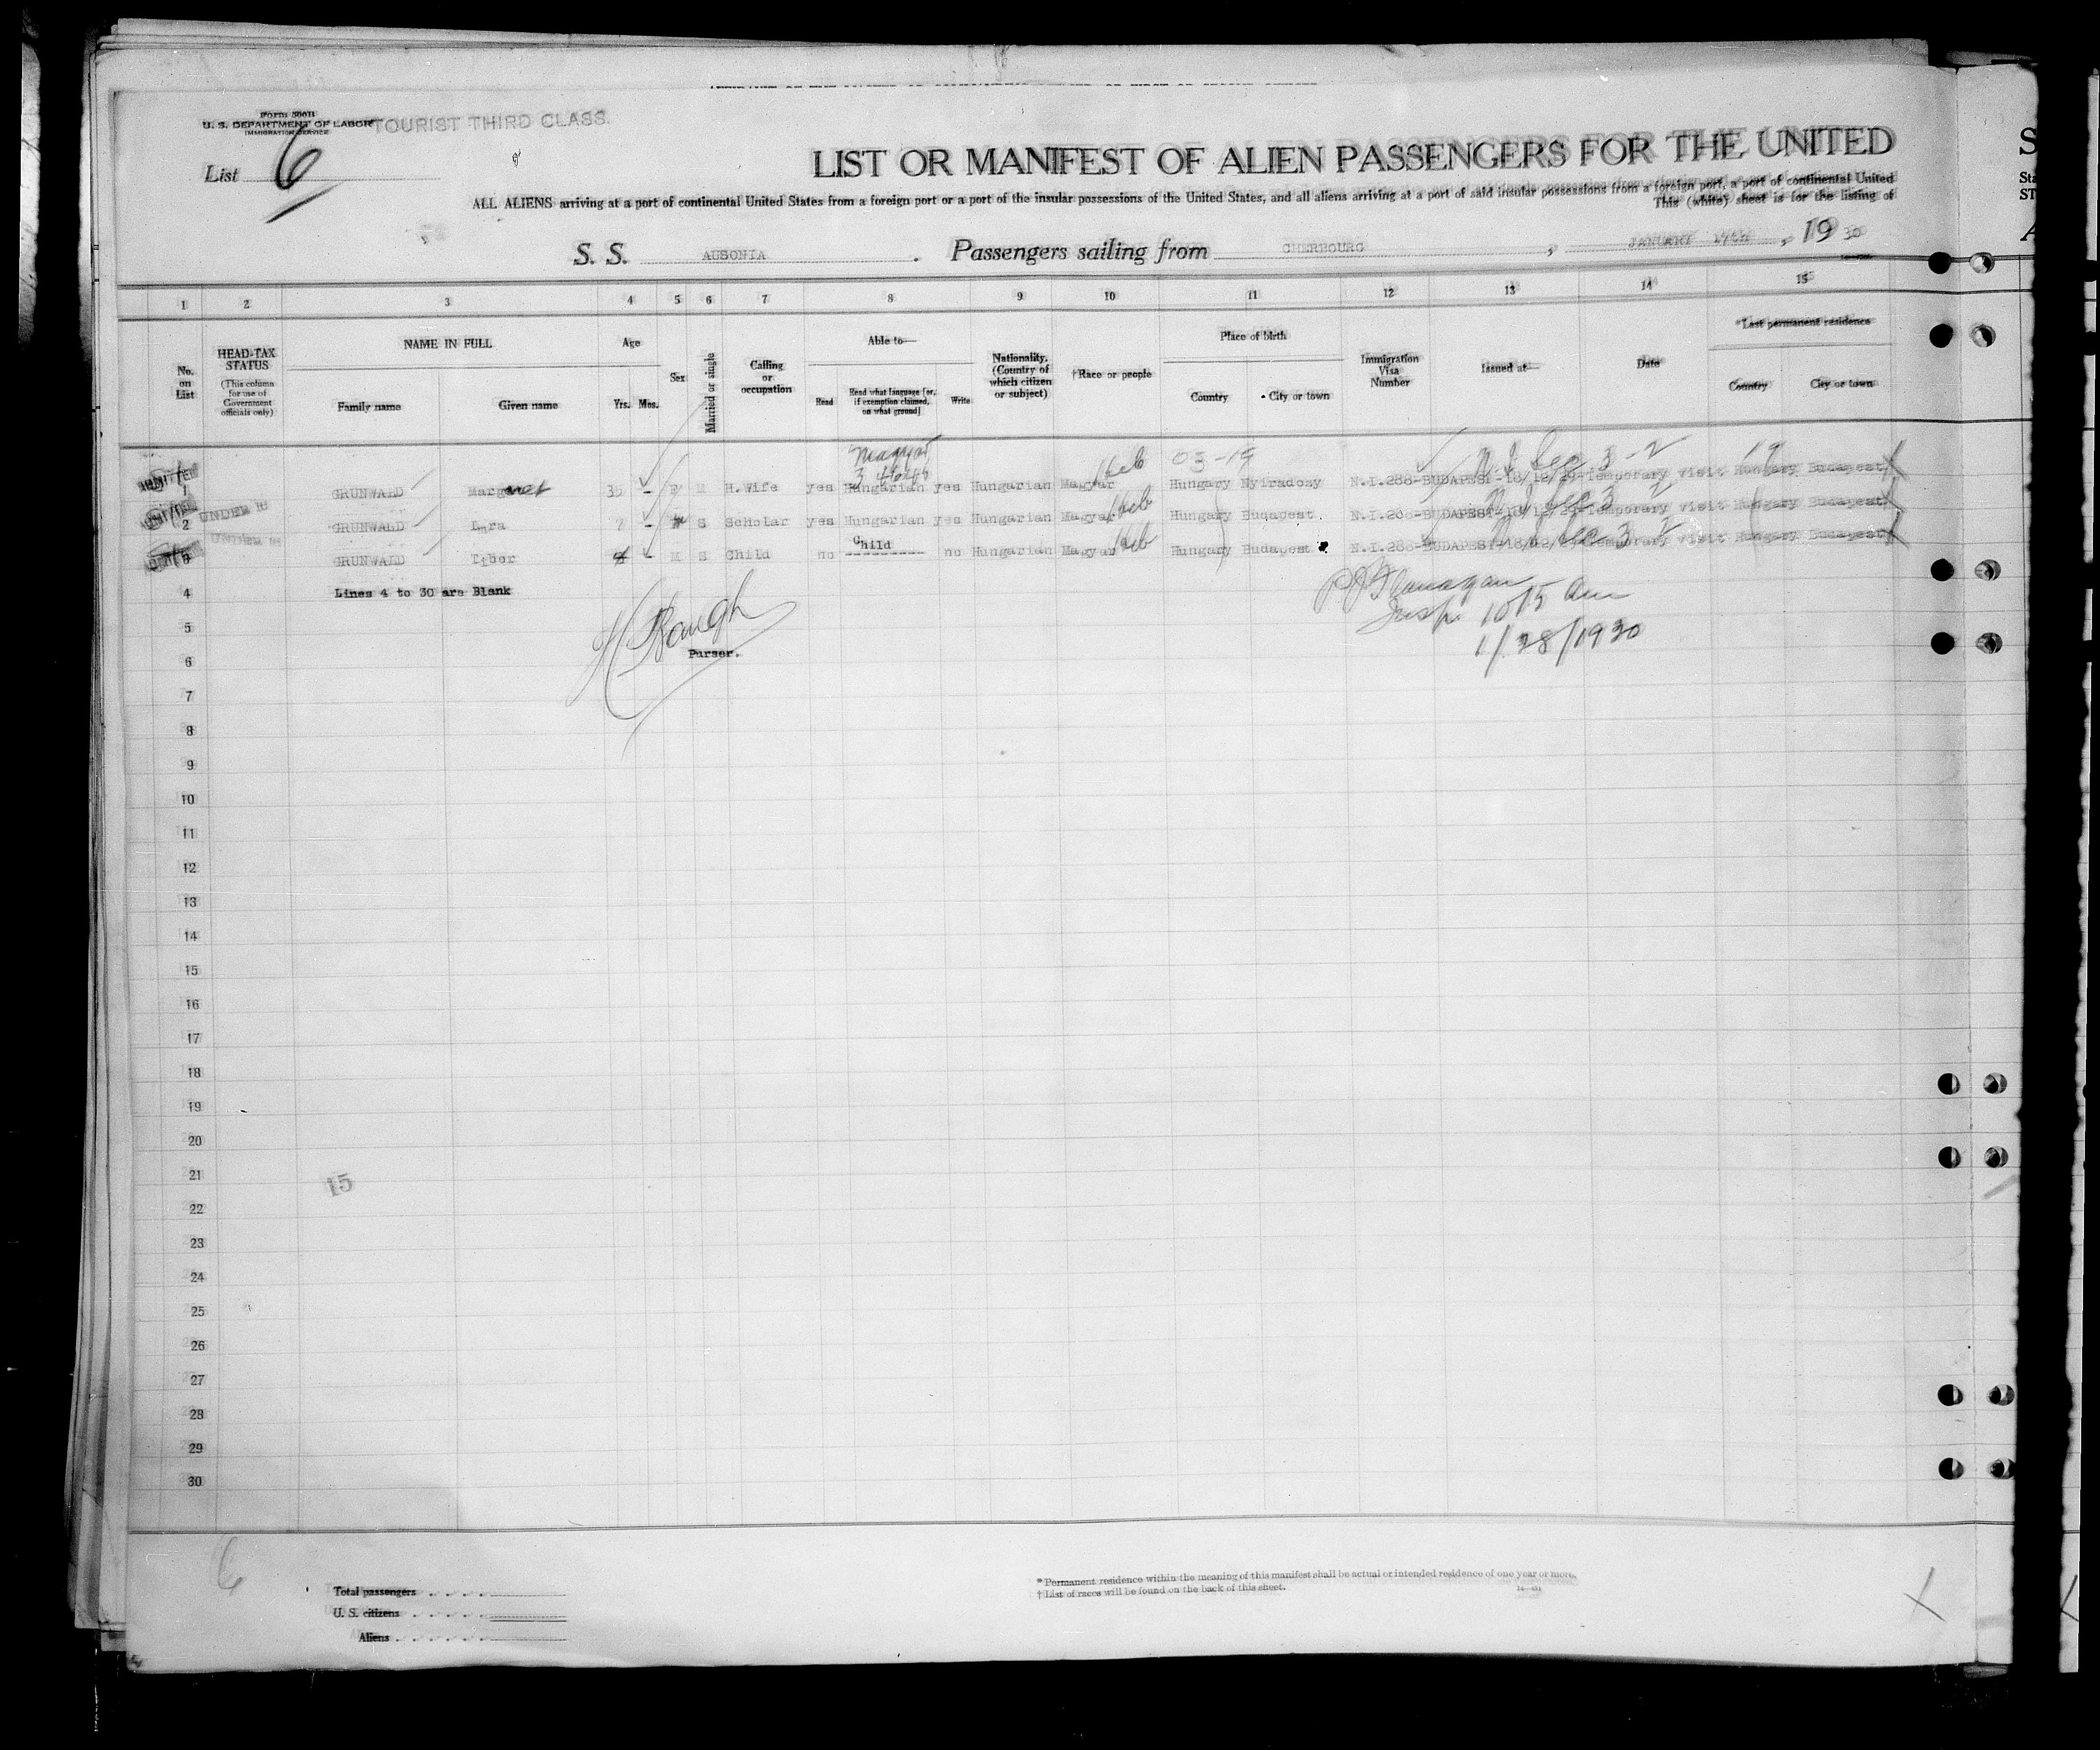 Form 500 U
U. S. DEPARTMENT OF LABOR
IMMIGRATION SERVICE
TOURIST THIRD CLASS.
List 6
LIST OR MANIFEST OF ALIEN PASSENGERS FOR THE UNITED
ALL ALIENS arriving at a port of continental United States from a foreign port or a port of the insular possessions of the United States, and all aliens arriving at a port of said insular possessions from a foreign port, a port of continental United
This (white) sheet is for the listing of
S. S. AUSONIA . Passengers sailing from CHERBOURG , JANUARY 17th , 19 30
1 2 3 4 5 6 7 8 9 10 11 12 13 14 15
No. on List
HEAD-TAX STATUS
(This column for use of Government officials only)
NAME IN FULL
Family name Given name
Age
Yrs. Mos.
Sex
Married or single
Calling or occupation
Able to—
Read Read what language [or, if exemption claimed, on what ground] Write
Nationality. (Country of which citizen or subject)
†Race or people
Place of birth
Country City or town
Immigration Visa Number
Issued at—
Date
*Last permanent residence
Country City or town
Magyar Heb 03-19 3-2 19
1 GRUNWALD Margaret 35 - F M H.Wife yes Hungarian yes Hungarian Magyar Hungary Nyiradony N.I.288-BUDAPEST-18/12/29-Temporary visit Hungary Budapest
2 UNDER 16 GRUNWALD 7 - S Scholar yes Hungarian yes Hungarian Magyar Heb Hungary Budapest. N.I.288-BUDAPEST-18/12/29-Temporary visit Hungary Budapest
3 UNDER 16 GRUNWALD Tibor 4 - M S Child no Child no Hungarian Magyar Heb Hungary Budapest N.I.288-BUDAPEST-18/12/29-Temporary visit Hungary Budapest
4 Lines 4 to 30 are Blank
5
6 Purser.
1015 am
1/28/1930
7
8
9
10
11
12
13
14
15
16
17
18
19
20
21
15
22
23
24
25
26
27
28
29
30
6
Total passengers
U. S. citizens
Aliens
* Permanent residence within the meaning of this manifest shall be actual or intended residence of one year or more.
† List of races will be found on the back of this sheet.
X